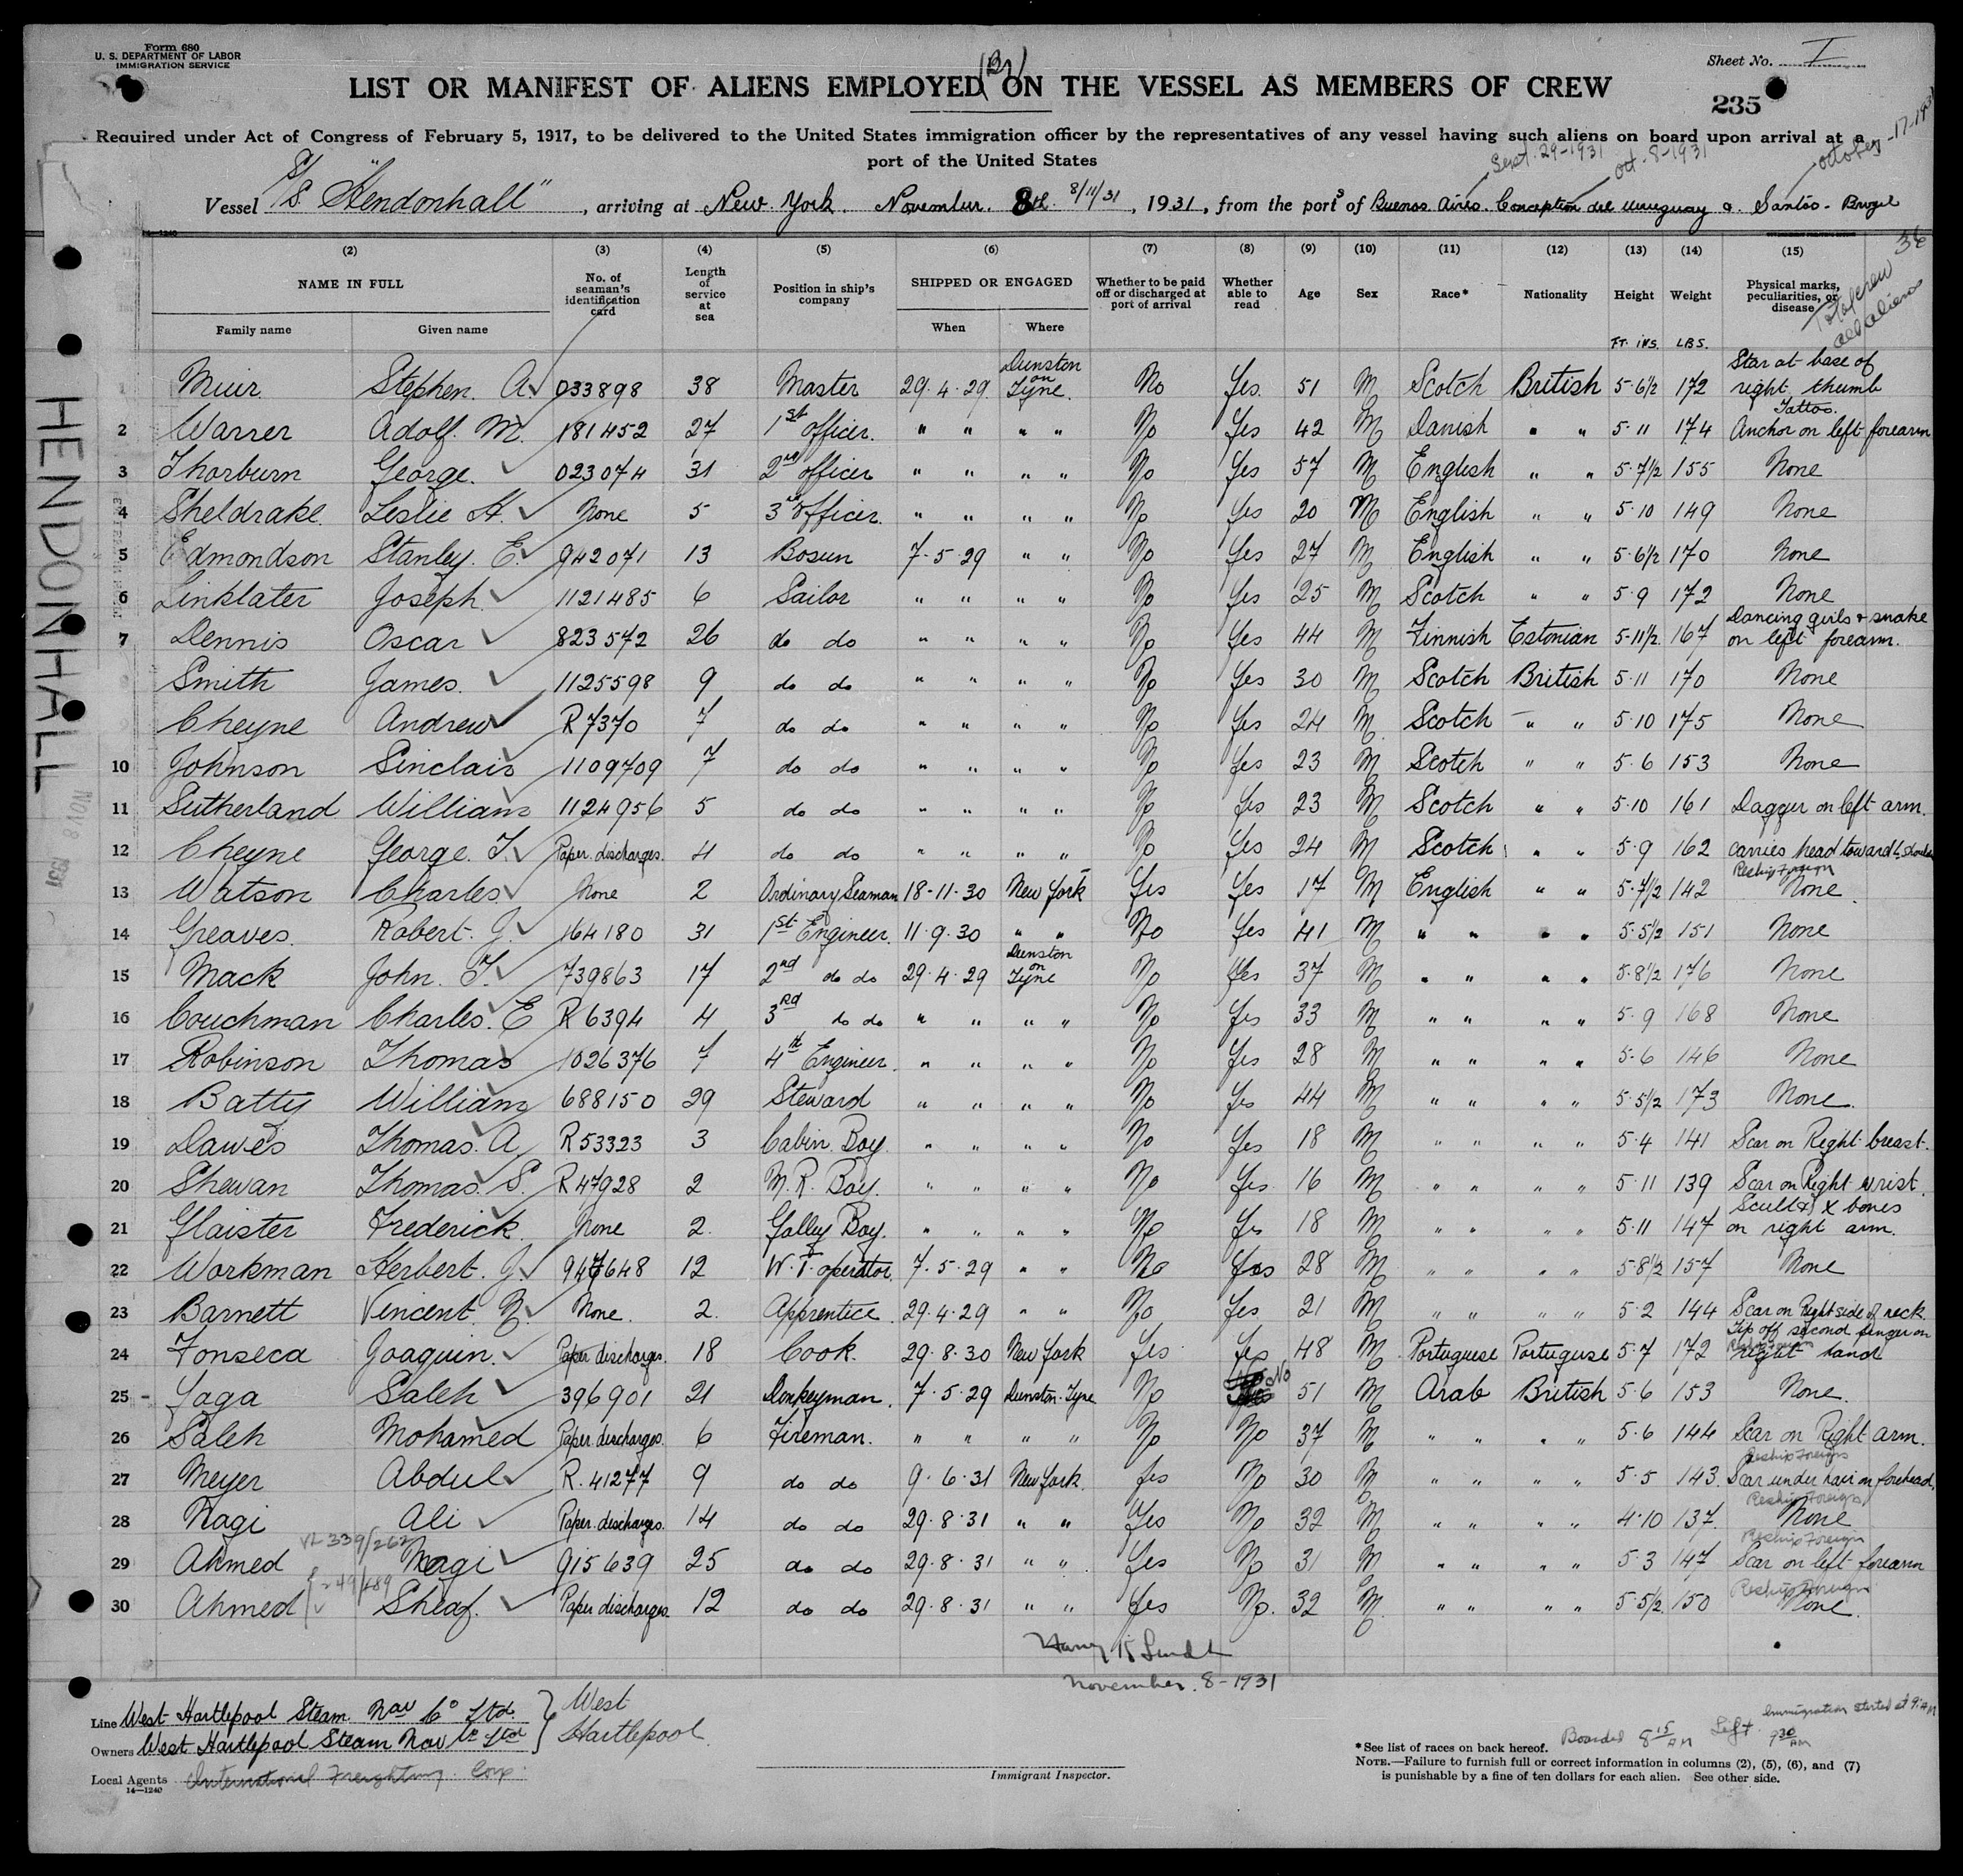 Form 680
U. S. DEPARTMENT OF LABOR
IMMIGRATION SERVICE
Sheet No. I
(Br)
LIST OR MANIFEST OF ALIENS EMPLOYED ON THE VESSEL AS MEMBERS OF CREW
235
Required under Act of Congress of February 5, 1917, to be delivered to the United States immigration officer by the representatives of any vessel having such aliens on board upon arrival at a
port of the United States
Sept. 29-1931 Oct. 8-1931 October-17-1931
Vessel S/S "Hendonhall", arriving at New York. November. 8th. 8/11/31, 1931, from the ports of Buenos Aires. Conception del Uruguay & Santos - Brazil
14-1240
36
Total crew
all aliens
(2) (3) (4) (5) (6) (7) (8) (9) (10) (11) (12) (13) (14) (15)
NAME IN FULL
Family name Given name
No. of seaman's identification card
Length of service at sea
Position in ship's company
SHIPPED OR ENGAGED
When Where
Whether to be paid off or discharged at port of arrival
Whether able to read
Age Sex Race* Nationality Height Weight
Physical marks, peculiarities, or disease
FT. INS. LBS.
Muir Stephen. A. 033898 38 Master 29.4.29 Dunston on Tyne. No Yes. 51 M Scotch British 5-6½ 172 Star at base of right thumb
2 Warrer Adolf. M. 181452 27 1st officer. " " " " No Yes 42 M Danish " " 5-11 174 Tattoo. Anchor on left forearm
3 Thorburn George. 023074 31 2nd officer " " " " No Yes 57 M English " " 5-7½ 155 None
4 Sheldrake. Leslie H. None 5 3rd officer. " " " " No Yes 20 M English " " 5-10 149 None
5 Edmondson Stanley. E. 942071 13 Bosun 7-5-29 " " No Yes 27 M English " " 5-6½ 170 None
6 Linklater Joseph 1121485 6 Sailor " " " " No Yes 25 M Scotch " " 5-9 172 None
7 Dennis Oscar 823572 26 do do " " " " No Yes 44 M Finnish Estonian 5-11½ 167 Dancing girls & snake on left forearm.
Smith James. 1125598 9 do do " " " " No Yes 30 M Scotch British 5-11 170 None
Cheyne Andrew R 7370 7 do do " " " " No Yes 24 M Scotch " " 5-10 175 None
10 Johnson Sinclair 1109709 7 do do " " " " No Yes 23 M Scotch " " 5-6 153 None
11 Sutherland William 1124956 5 do do " " " " No Yes 23 M Scotch " " 5-10 161 Dagger on left arm.
12 Cheyne George. T. Paper discharges. 4 do do " " " " No Yes 24 M Scotch " " 5-9 162 carries head toward L. shoulder
13 Watson Charles None 2 Ordinary Seaman 18-11-30 New York Yes Yes 17 M English " " 5-7½ 142 Reship Foreign None
14 Greaves. Robert. J. 164180 31 1st Engineer. 11.9.30 " " No Yes 41 M " " " " 5-5½ 151 None
15 Mack John. T. 739863 17 2nd do do 29.4.29 Dunston on Tyne No Yes 37 M " " " " 5-8½ 176 None
16 Couchman Charles. E R 6394 4 3rd do do " " " " No Yes 33 M " " " " 5-9 168 None
17 Robinson Thomas 1026376 7 4th Engineer. " " " " No Yes 28 M " " " " 5-6 146 None
18 Batty William 688150 29 Steward " " " " No Yes 44 M " " " " 5-5½ 173 None.
19 Dawes Thomas. A. R 53323 3 Cabin Boy " " " " No Yes 18 M " " " " 5-4 141 Scar on Right breast.
20 Shewan Thomas. S. R 47928 2 M. R. Boy. " " " " No Yes 16 M " " " " 5-11 139 Scar on Right wrist.
21 Glaister Frederick. None 2. Galley Boy. " " " " No Yes 18 M " " " " 5-11 147 Scull & X bones on right arm.
22 Workman Herbert. J. 947648 12 W. T. operator. 7.5.29 " " No Yes 28 M " " " " 5-8½ 157 None
23 Barnett Vincent. N. None. 2. Apprentice. 29.4.29 " " No Yes 21 M " " " " 5-2 144 Scar on Right side of neck
24 Fonseca Joaquin. Paper discharges. 18 Cook 29.8.30 New York Yes Yes 48 M Portuguese Portuguese 5-7 172 Tip off second finger on right hand
25 - Yaga Saleh 396901 21 Donkeyman. 7.5.29 Dunston-Tyne No No 51 M Arab British 5-6 153 None.
26 Saleh Mohamed Paper discharges. 6 Fireman. " " " " No No 37 M " " " " 5-6 144 Scar on Right arm.
27 Meyer Abdul R. 41277 9 do do 9.6.31 New York. Yes No 30 M " " " " 5-5 143. Reship Foreign Scar under hair on forehead.
28 Nagi Ali Paper discharges. 14 do do 29.8.31 " " Yes No 32 M " " " " 4-10 137. Reship Foreign None
VL 339/262
29 Ahmed Nagi 915639 25 do do 29.8.31 " " Yes No 31 M " " " " 5-3 147 Reship Foreign Scar on left forearm
49/489
30 Ahmed Sheaf. Paper discharges 12 do do 29.8.31 " " Yes No. 32 M " " " " 5-5½ 150 Reship Foreign None.
HENDONHALL
November. 8-1931
Line West Hartlepool Steam Nav Co Ltd. } West
Owners West Hartlepool Steam Nav Co Ltd } Hartlepool.
Local Agents International Freighting Corp.
14-1240
Immigrant Inspector.
Immigration started at 9 AM
Boarded 8 15 AM Left 9 30 AM
*See list of races on back hereof.
NOTE.—Failure to furnish full or correct information in columns (2), (5), (6), and (7)
is punishable by a fine of ten dollars for each alien. See other side.